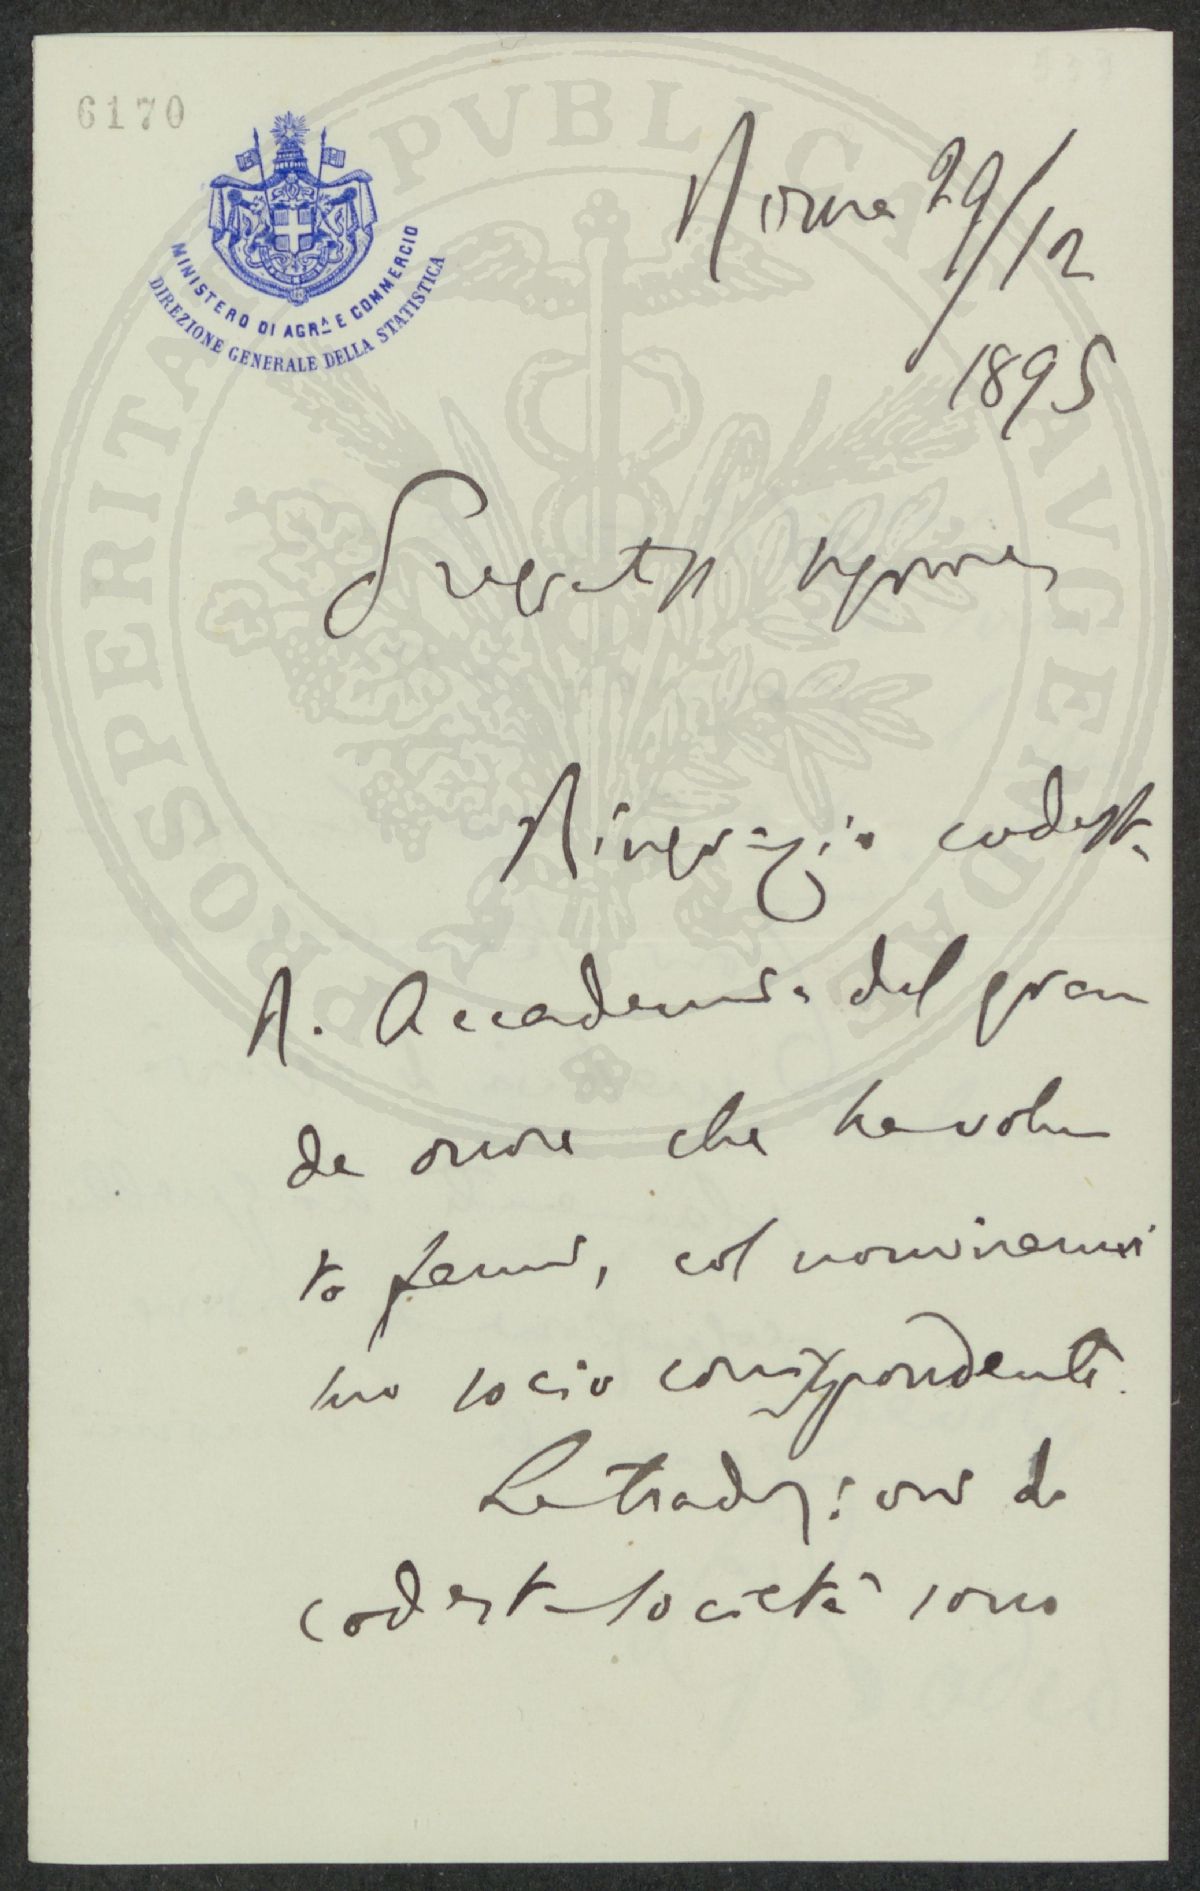 6170
MINISTERO DI AGR.A E COMMERCIO
DIREZIONE GENERALE DELLA STATISTICA
PROSPERITATI PVBLICAE AVGENDAE
Roma 29/12
1895
Pregiat.
Ringrazio codesta
R. Accademia del gran
de onore che ha volu
to farmi, col nominarmi
suo socio corrispondente.
Le tradizioni di
codesta Società sono